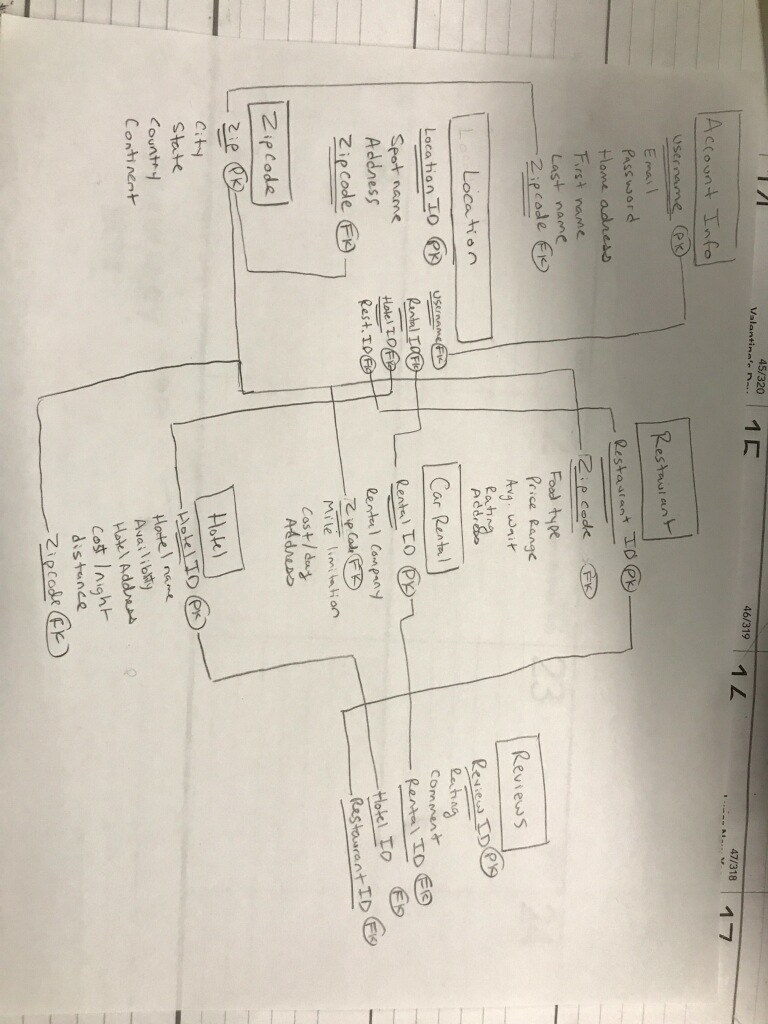 45/320
Valentine's Day
15
46/319
47/318
17
Account Info
Username PK
Email
Password
Home adress
First name
Last name
Zipcode FK
Location
Location ID PK
Spot name
Address
Zipcode FK
Username FK
Rental ID FK
Hotel ID FK
Rest. ID FK
Zipcode
Zip PK
City
State
Country
Continent
Restaurant
Restaurant ID PK
Zipcode FK
Food type
Price Range
Avg. Wait
Rating
Address
Car Rental
Rental ID PK
Rental Company
Zipcode FK
Mile limitation
Cost/day
Address
Hotel
Hotel ID PK
Hotel name
Hotel Address
Cost/night
distance
Zipcode FK
Reviews
Review ID PK
Rating
Comment
Rental ID FK
Hotel ID FK
Restaurant ID FK
23
24